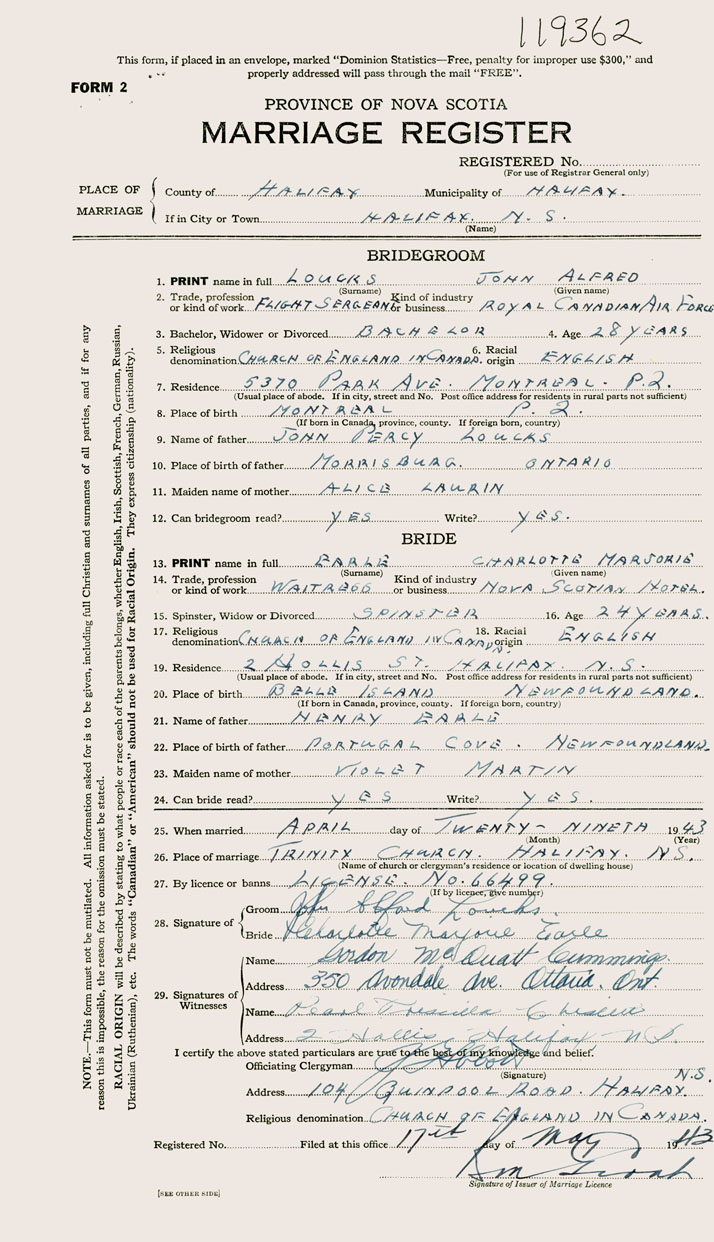 119362
This form, if placed in an envelope, marked “Dominion Statistics—Free, penalty for improper use $300,” and
properly addressed will pass through the mail “FREE”.
FORM 2
PROVINCE OF NOVA SCOTIA
MARRIAGE REGISTER
REGISTERED No.
(For use of Registrar General only)
PLACE OF MARRIAGE
County of HALIFAX Municipality of HALIFAX.
If in City or Town HALIFAX. N. S.
(Name)
BRIDEGROOM
1. PRINT name in full LOUCKS JOHN ALFRED
(Surname) (Given name)
2. Trade, profession or kind of work FLIGHT SERGEANT Kind of industry or business ROYAL CANADIAN AIR FORCE
3. Bachelor, Widower or Divorced BACHELOR 4. Age 28 YEARS
5. Religious denomination CHURCH OF ENGLAND IN CANADA. 6. Racial origin ENGLISH
7. Residence 5370 PARK AVE. MONTREAL. P.Q.
(Usual place of abode. If in city, street and No. Post office address for residents in rural parts not sufficient)
8. Place of birth MONTREAL P. Q.
(If born in Canada, province, county. If foreign born, country)
9. Name of father JOHN PERCY LOUCKS
10. Place of birth of father MORRISBURG. ONTARIO
11. Maiden name of mother ALICE LAURIN
12. Can bridegroom read? YES Write? YES.
BRIDE
13. PRINT name in full EARLE CHARLOTTE MARJORIE
(Surname) (Given name)
14. Trade, profession or kind of work WAITRESS Kind of industry or business NOVA SCOTIAN HOTEL.
15. Spinster, Widow or Divorced SPINSTER 16. Age 24 YEARS.
17. Religious denomination CHURCH OF ENGLAND IN CANADA. 18. Racial origin ENGLISH
19. Residence 2 HOLLIS ST. HALIFAX. N.S.
(Usual place of abode. If in city, street and No. Post office address for residents in rural parts not sufficient)
20. Place of birth BELLE ISLAND NEWFOUNDLAND.
(If born in Canada, province, county. If foreign born, country)
21. Name of father HENRY EARLE
22. Place of birth of father PORTUGAL COVE. NEWFOUNDLAND.
23. Maiden name of mother VIOLET MARTIN
24. Can bride read? YES Write? YES.
25. When married APRIL day of TWENTY-NINETH 1943
(Month) (Year)
26. Place of marriage TRINITY CHURCH. HALIFAX. N.S.
(Name of church or clergyman's residence or location of dwelling house)
27. By licence or banns LICENSE. No. 66499.
(If by licence, give number)
28. Signature of
Groom John Alfred Loucks.
Bride Charlotte Marjorie Earle
29. Signatures of Witnesses
Name Gordon McQuatt Cummings
Address 350 Avondale Ave. Ottawa. Ont.
Name Pearl
Address 2 Hollis, Halifax N.S.
I certify the above stated particulars are true to the best of my knowledge and belief.
Officiating Clergyman
(Signature) N.S.
Address 104 QUINPOOL ROAD. HALIFAX.
Religious denomination CHURCH OF ENGLAND IN CANADA.
Registered No. Filed at this office 17th day of May 1943
Signature of Issuer of Marriage Licence
[SEE OTHER SIDE]
NOTE.—This form must not be mutilated. All information asked for is to be given, including full Christian and surnames of all parties, and if for any
reason this is impossible, the reason for the omission must be stated.
RACIAL ORIGIN will be described by stating to what people or race each of the parents belongs, whether English, Irish, Scottish, French, German, Russian,
Ukrainian (Ruthenian), etc. The words “Canadian” or “American” should not be used for Racial Origin. They express citizenship (nationality).